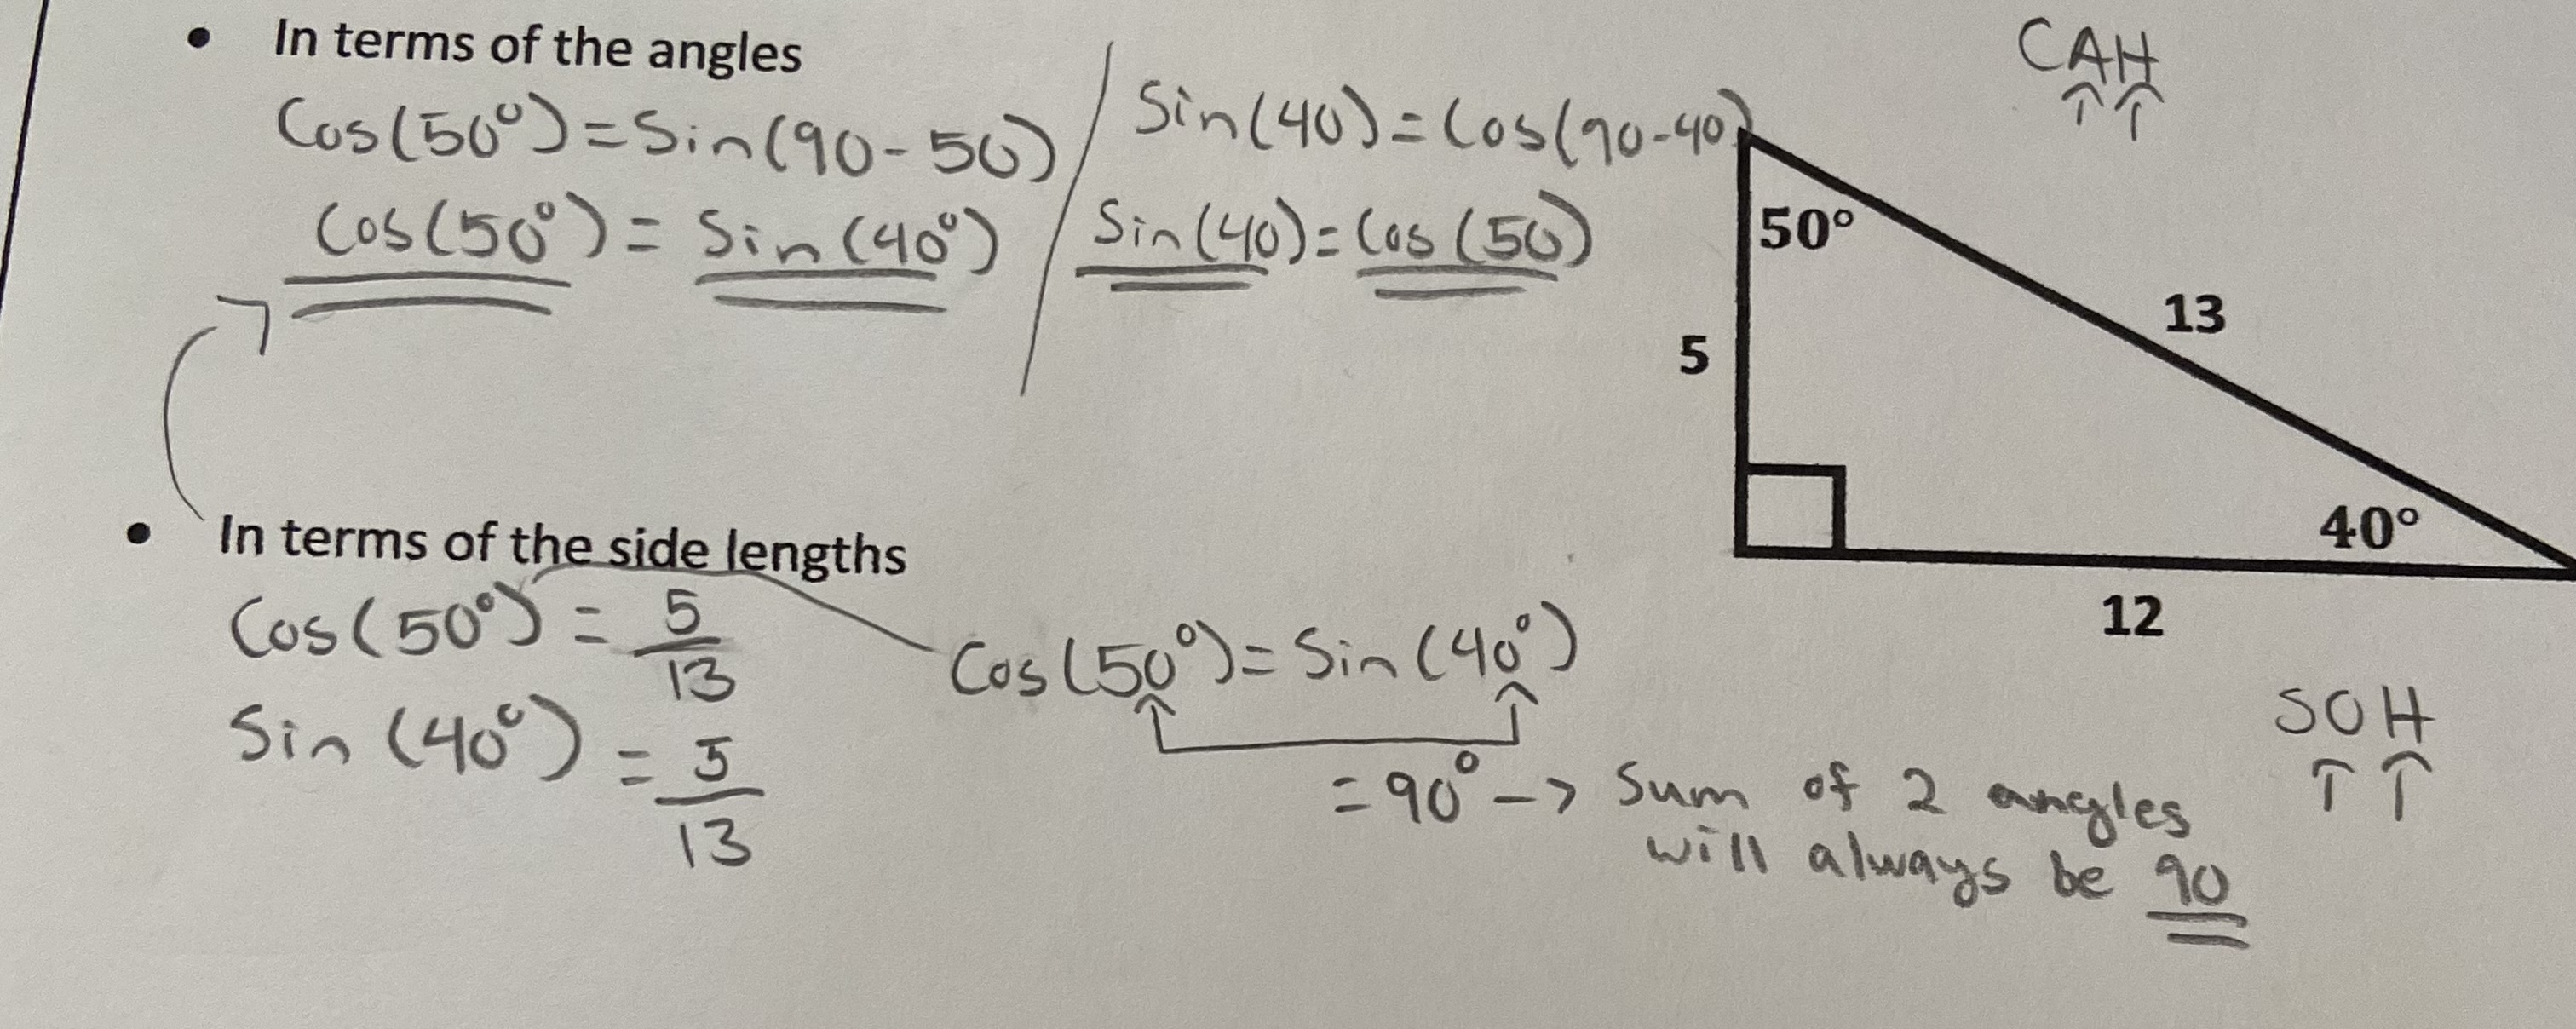 • In terms of the angles
Cos(50°)=Sin(90-50)
Cos(50°)=Sin(40°)
Sin(40)=Cos(90-40)
Sin(40)=Cos(50)
CAH
50°
13
5
40°
12
• In terms of the side lengths
Cos(50°)=5/13
Sin(40°)=5/13
Cos(50°)=Sin(40°)
=90° -> Sum of 2 angles
will always be 90
SOH